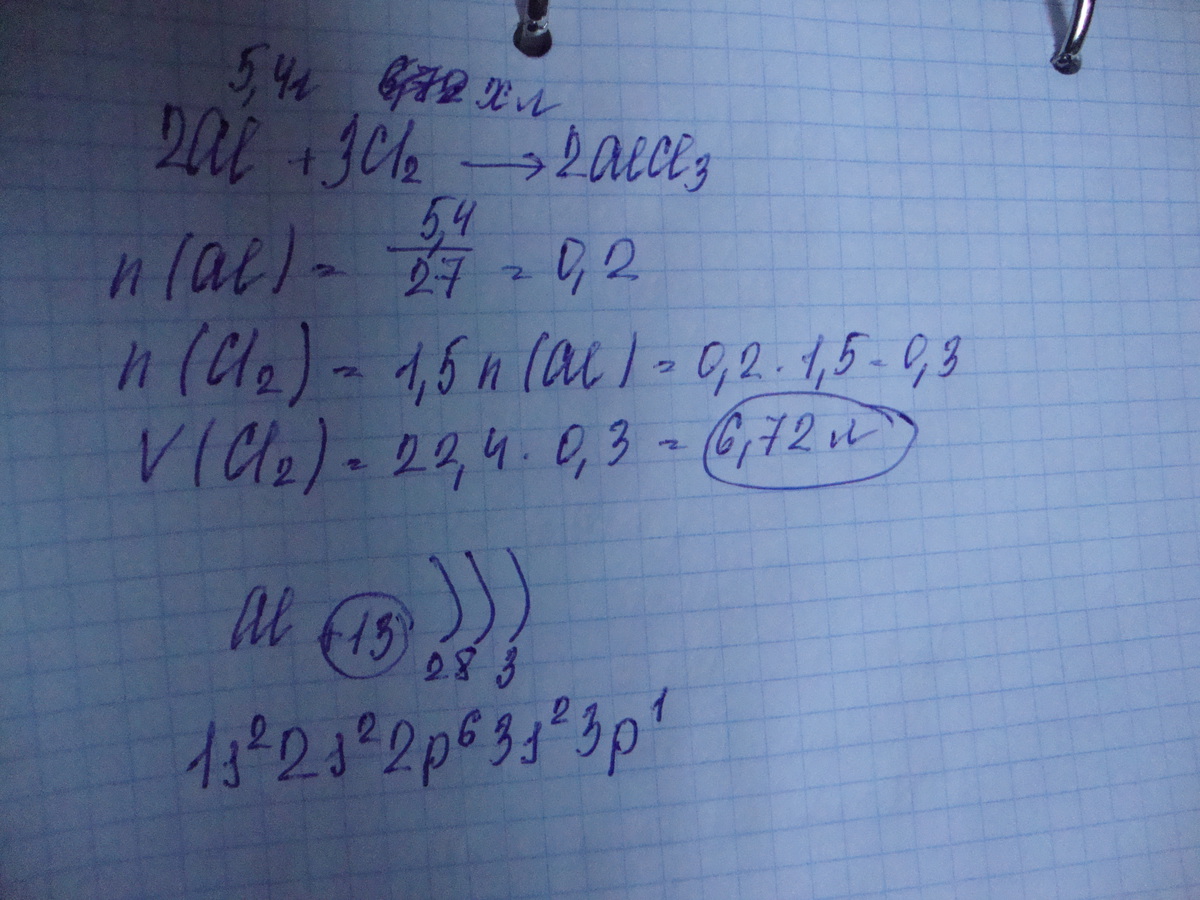 5,4г х л
2Al + 3Cl₂ → 2AlCl₃
n(Al) = 5,4/27 = 0,2
n(Cl₂) = 1,5n(Al) = 0,2·1,5=0,3
V(Cl₂) = 22,4·0,3 = 6,72л
Al +13 ) ) )
2 8 3
1s²2s²2p⁶3s²3p¹